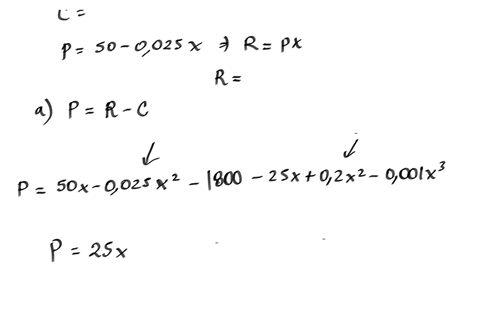 C =
P = 50 - 0,025x ⇒ R = PX
R =
a) P = R - C
P = 50x - 0,025x² - 1800 - 25x + 0,2x² - 0,001x³
P = 25x